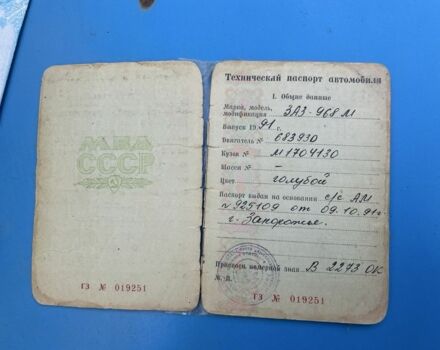 МВД
СССР
ТЗ № 019251
Технический паспорт автомобиля
I. Общие данные
Марка, модель,
модификация ЗАЗ-968М
Выпуск 1991 г.
Двигатель № 683930
Кузов № М1704130
Шасси № –
Цвет голубой
Паспорт выдан на основании с/с АМ
№ 925109 от 09.10.91г
г. Запорожье.
Присвоен номерной знак В 2273 ОК
М. П.
ТЗ № 019251